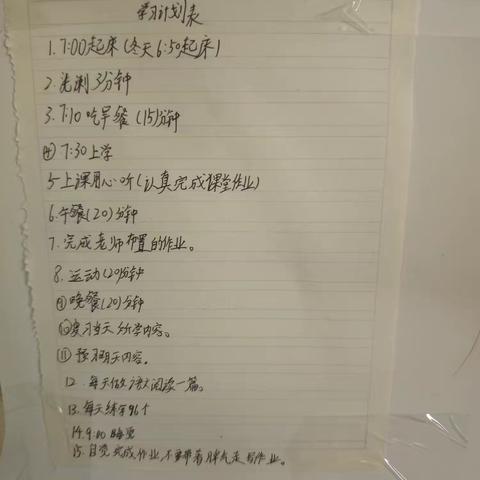 学习计划表
1. 7:00起床(冬天6:50起床)
2. 洗漱3分钟
3. 7:10吃早餐(15)分钟
④ 7:30上学
5. 上课用心听(认真完成课堂作业)
6. 午餐(20)分钟
7. 完成老师布置的作业。
8. 运动(20)分钟
⑨晚餐(20)分钟
⑩复习当天所学内容。
⑪ 预习明天内容。
12. 每天做语文阅读一篇。
13. 每天练字96个
14. 9:00睡觉
15. 自觉完成作业,不要带着脾气去写作业。